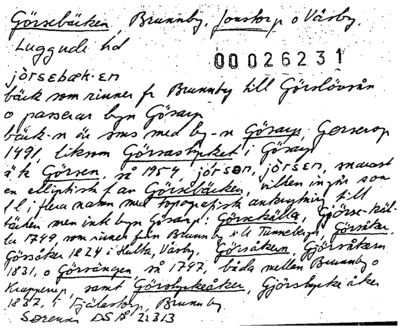 Görsebäcken, Brunnby, Jonstorp o Väsby.
Luggude hd
00026231
jörsebæk·en
bäck som rinner fr Brunnby till Görslövsån
o passerar byn Görarp
bäck-n är sms med by-n Görarp, Gerserop
1491, liksom Görrastycket i Görarp
å k Görsen, så 1954, jörsen, jörsen, snarast
en elliptisk f an Görsebäcken, vilken ingår som
f l i flera namn med topografisk anknytning till
bäcken men ink byn Görarp: Görsekälla, Gjörse-käl-
la 1749, som rinner från Brunnby Görsåker,
Görsåker 1824 i Hulta, Väsby, Görsåkern, Gjörsåkern
1831, o Görsängen, så 1797, båda mellan Brunnby o
Krapperup samt Görstyckeåker, Gjörstycke åker
1837, i Fjälastorp, Brunnby
Sörensen DS 12 s 313